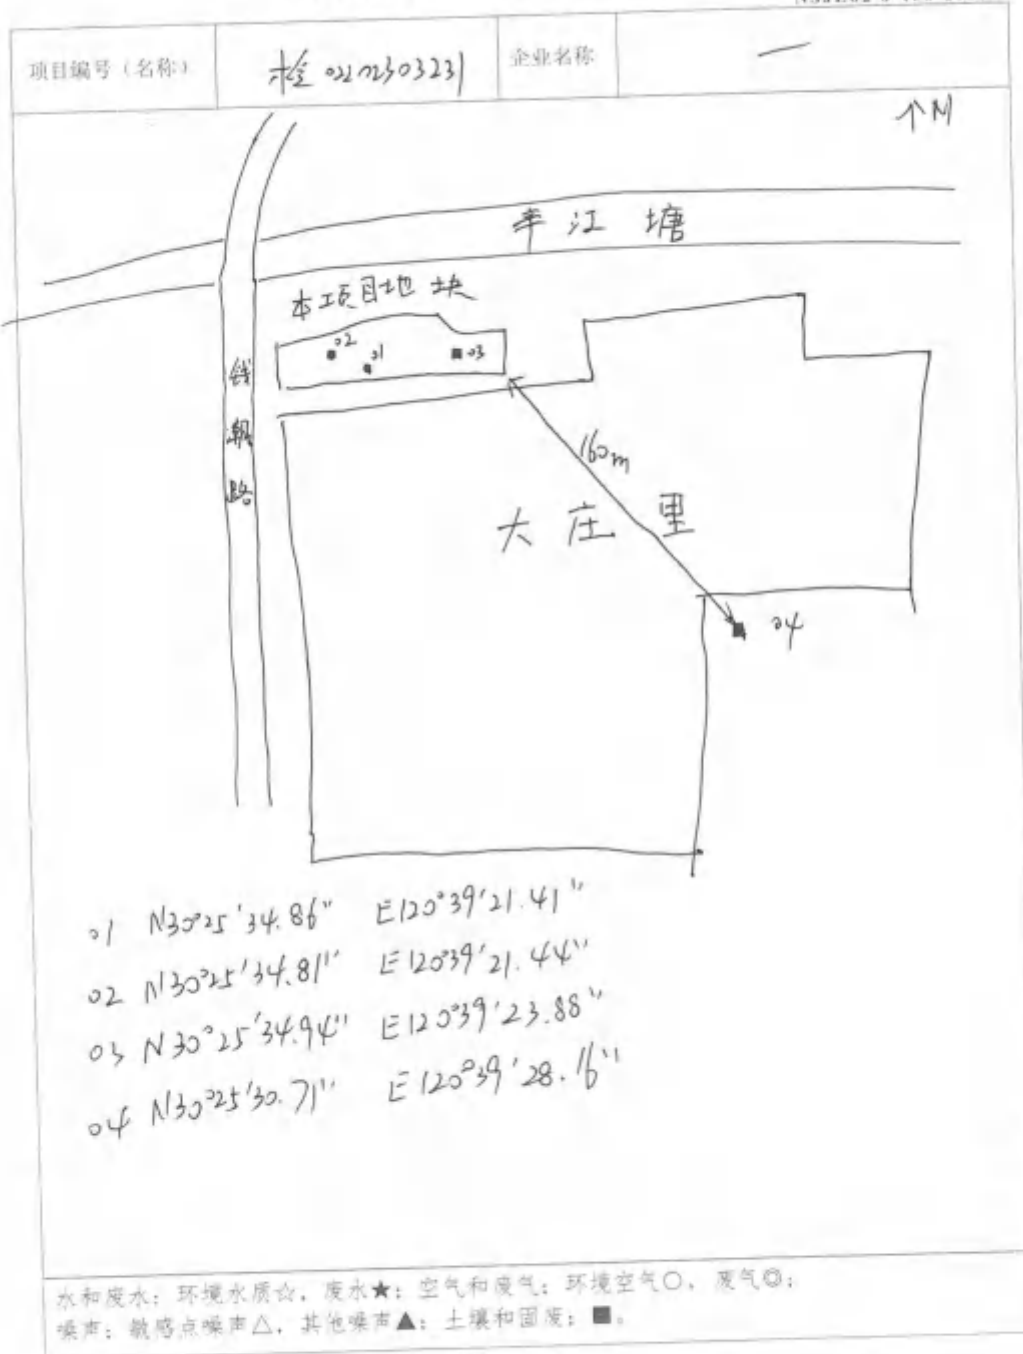 项目编号（名称） 检02202303231 企业名称 一
个N
丰江塘
本项目地块
02
01
03
钱
潮
路
160m
大庄里
04
01 N30°25'34.86" E120°39'21.41"
02 N30°25'34.81" E120°39'21.44"
03 N30°25'34.94" E120°39'23.88"
04 N30°25'30.71" E120°39'28.16"
水和废水：环境水质☆，废水★；空气和废气：环境空气○，废气◎；
噪声：敏感点噪声△，其他噪声▲；土壤和固废：■。